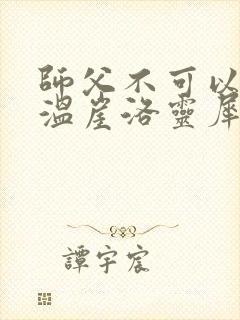 師父不可以
溫崖洛靈犀
譚宇宸